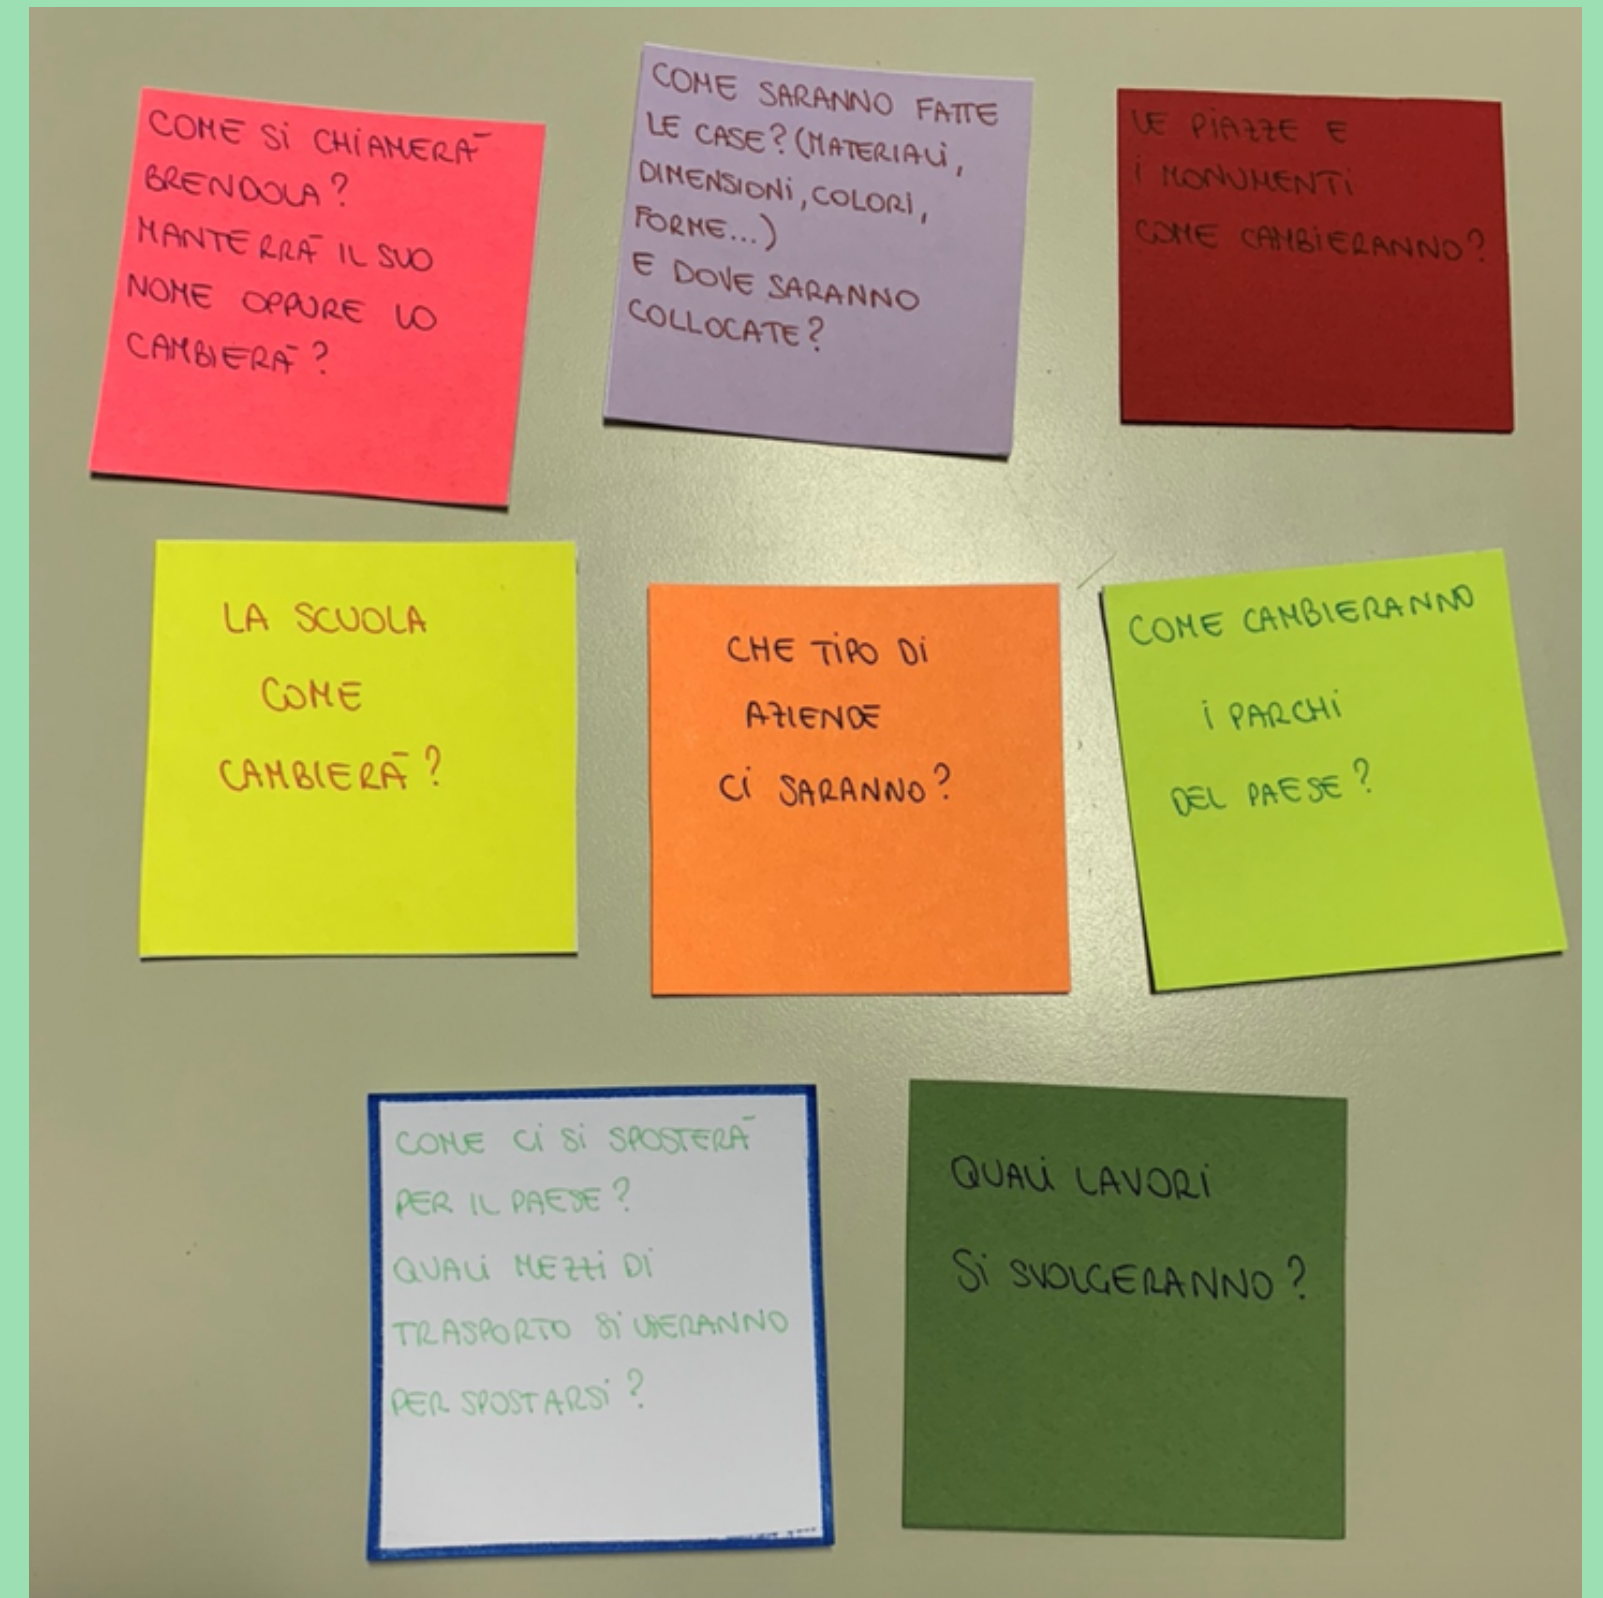 COME Si CHiAMERÀ
BRENDOLA?
MANTERRÀ IL SUO
NOME OPPURE LO
CAMBIERÀ?
COME SARANNO FATTE
LE CASE? (MATERIALi,
DIMENSIONi, COLORi,
FORME...)
E DOVE SARANNO
COLLOCATE?
LE PiAZZE E
i MONUMENTi
COME CAMBiERANNO?
LA SCUOLA
COME
CAMBIERÀ?
CHE TiPO Di
AZIENDE
Ci SARANNO?
COME CAMBIERANNO
i PARCHi
DEL PAESE?
COME Ci Si SPOSTERÀ
PER IL PAESE?
QUALi MEZZi Di
TRASPORTO Si USERANNO
PER SPOSTARSi?
QUALi LAVORi
Si SVOLGERANNO?